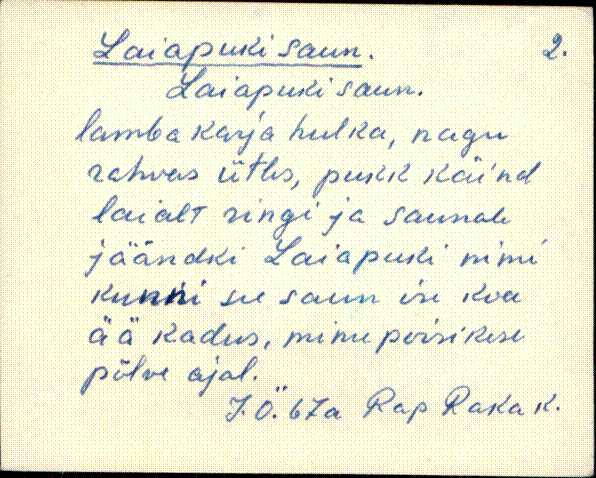 Laiapuki saun. 2.
Laiapuki saun.
lamba karja hulka, nagu
rahvas ütles, pukk käind
laialt ringi ja saunale
jäändki Laiapuki nimi
kunni see saun ise koa
ää kadus, minu poisikese
põlve ajal.
J.Ö. 67a Rap Raka k.